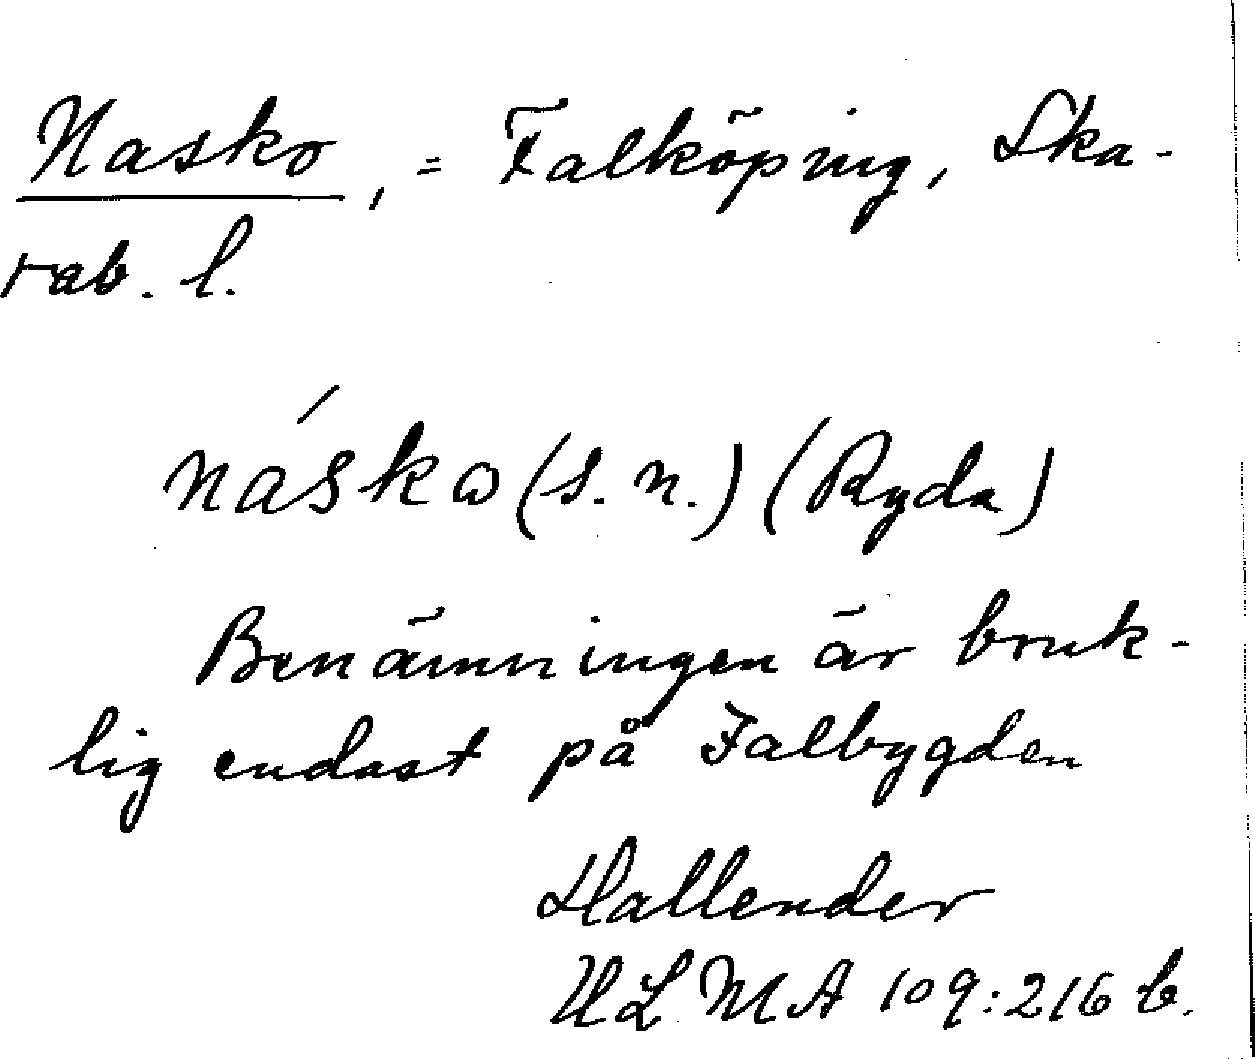 Nasko, = Falköping, Ska-
rab. l.
náskω (s. n.) (Ryda)
Benämningen är bruk-
lig endast på Falbygden
Hallender
ULMA 109:216 b.